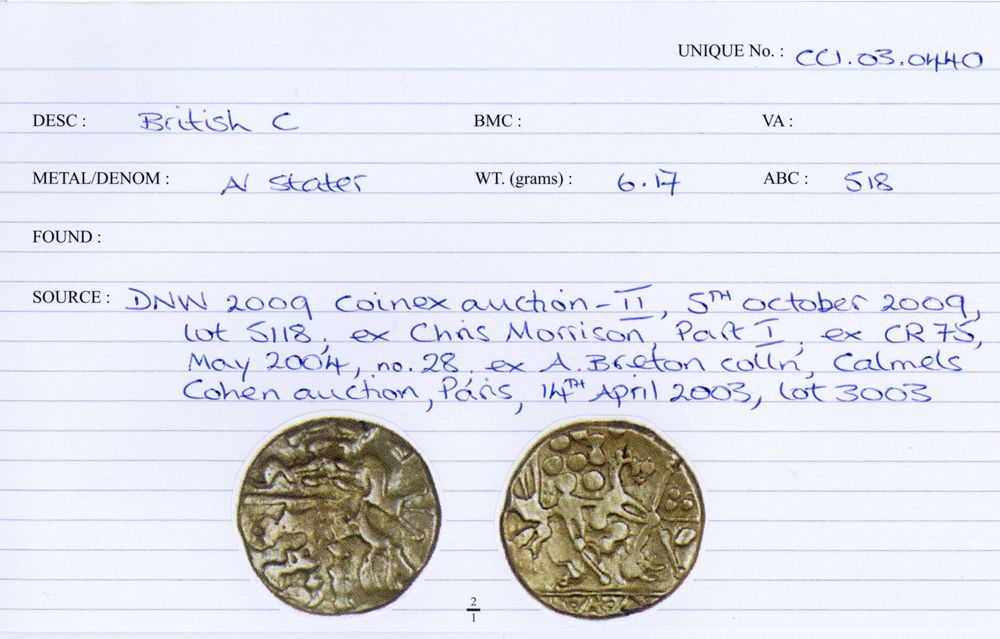 UNIQUE No. : CCI.03.0440
DESC : British C BMC : VA :
METAL/DENOM : AV Stater WT. (grams) : 6.17 ABC : 518
FOUND :
SOURCE : DNW 2009 Coinex auction - II, 5TH October 2009,
lot 5118, ex Chris Morrison, Part I, ex CR 75,
May 2004, no. 28, ex A. Breton colln, Calmels
Cohen auction, Paris, 14TH April 2003, lot 3003
2
1